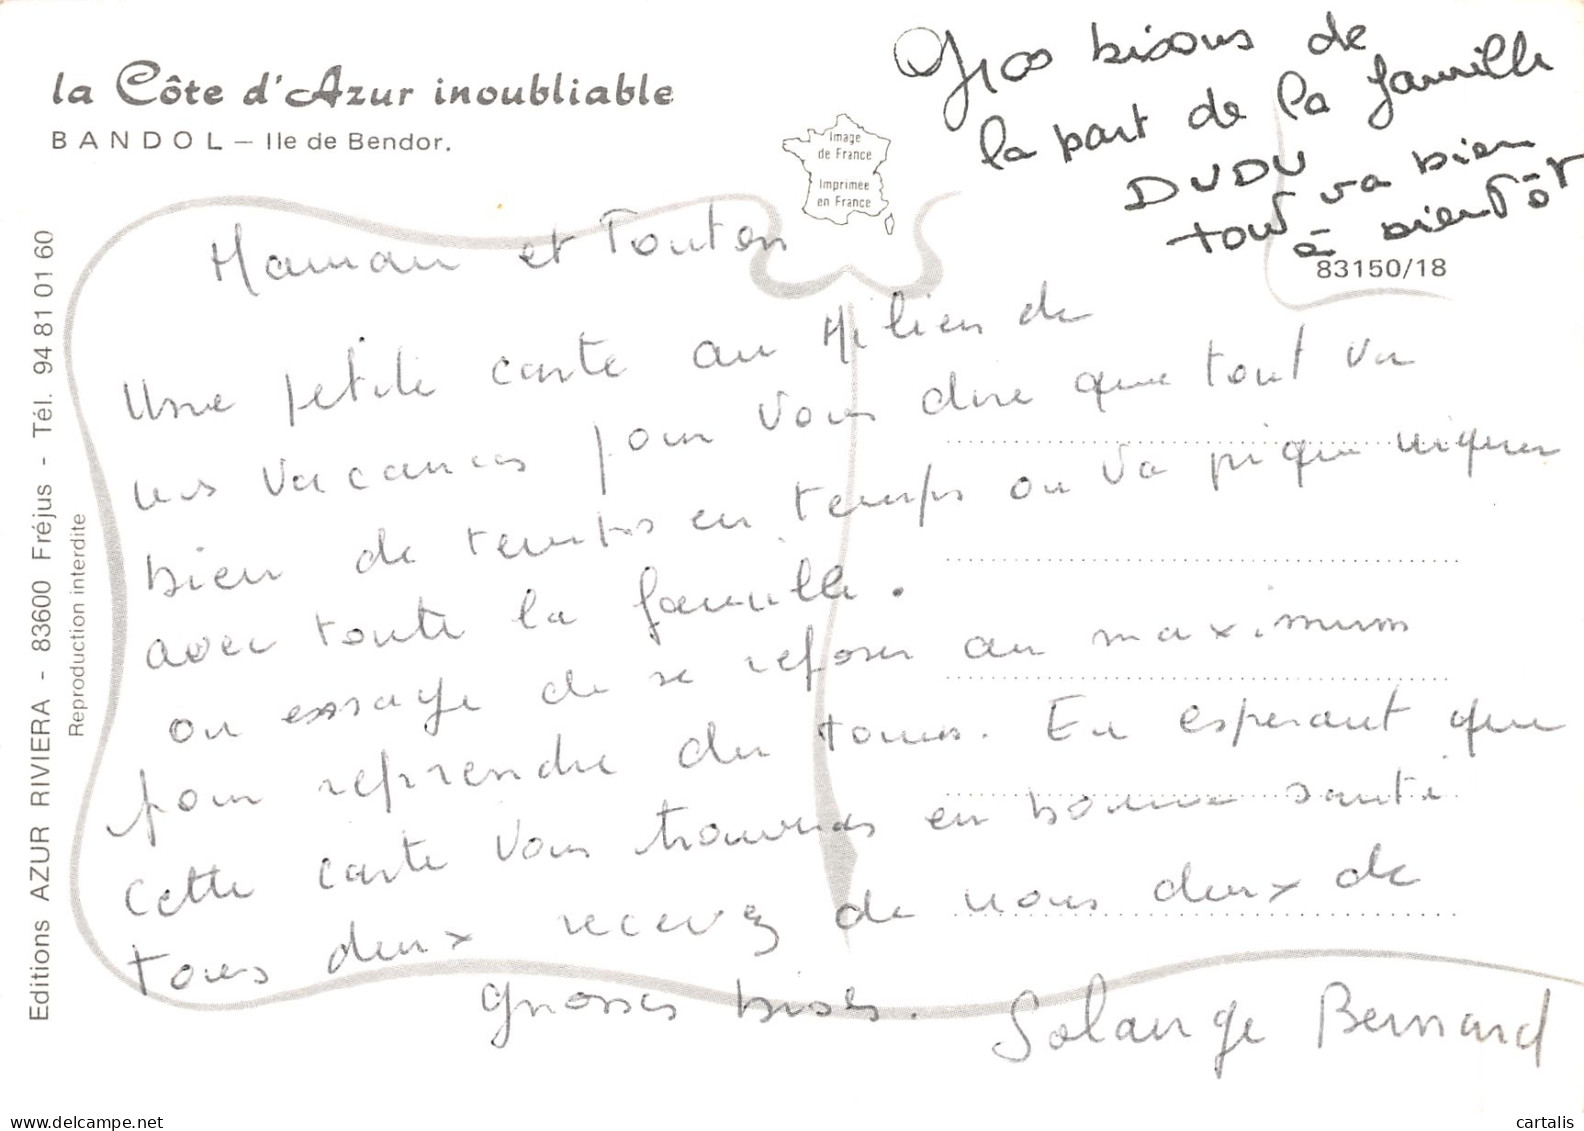 la Côte d'Azur inoubliable
BANDOL — Ile de Bendor.
Image
de France
Imprimée
en France
Gros bisous de
la part de la famille
DUDU
tout va bien
à bientôt
83150/18
Maman et Tonton
Une petite carte au Milieu de
nos vacances pour vous dire que tout va
bien de temps en temps on va pique niquer
avec toute la famille.
on essaye de se reposer au maximum
pour reprendre du tonus. En esperant que
cette carte vous trouveras en bonne santé
tous deux recevez de nous deux de
grosses bises.
Solange Bernard
Editions AZUR RIVIERA - 83600 Fréjus - Tél. 94 81 01 60
Reproduction interdite
www.delcampe.net
cartalis